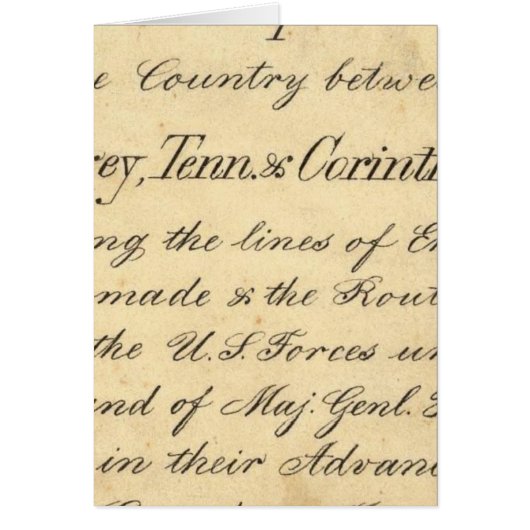 e Country betwe
rey, Tenn. & Corint
ng the lines of E
made & the Rout
the U.S. Forces un
nd of Maj. Genl.
in their Advan